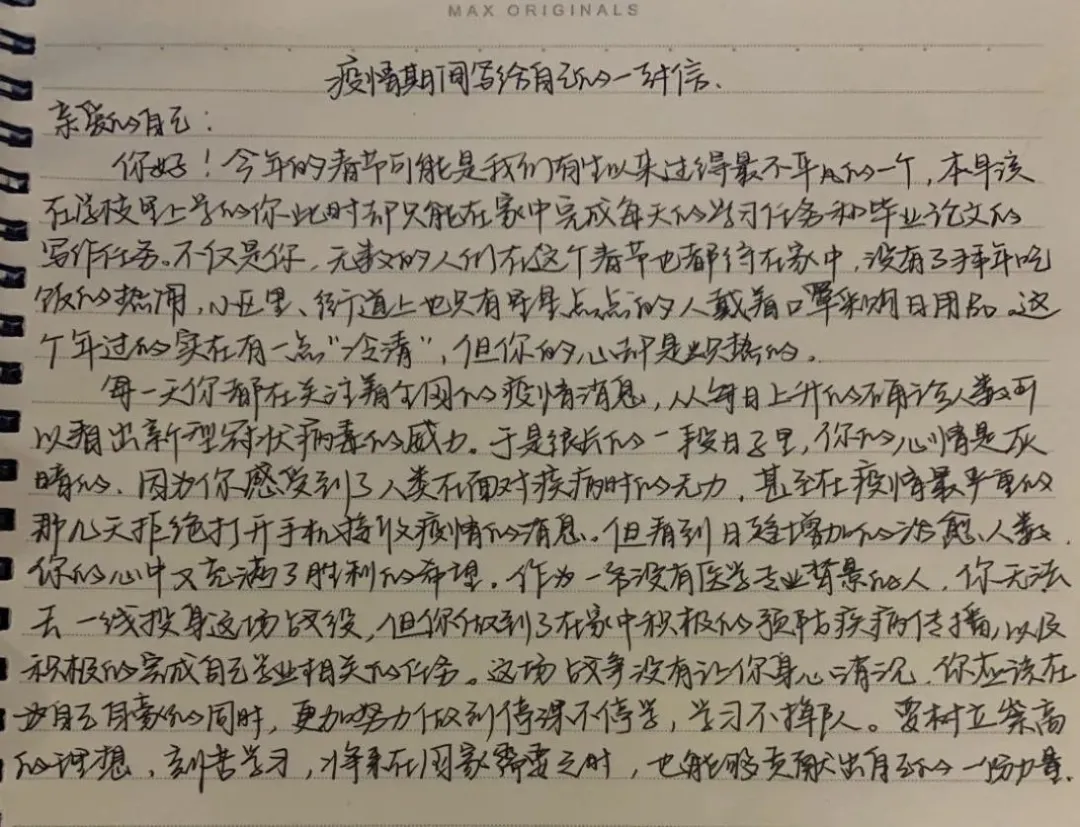 MAX ORIGINALS
疫情期间写给自己的一封信.
亲爱的自己：
你好！今年的春节可能是我们有生以来过得最不平凡的一个，本早该
在学校里上学的你此时却只能在家中完成每天的学习任务和毕业论文的
写作任务。不仅是你，无数的人们在这个春节也都待在家中，没有了拜年吃
饭的热闹，小区里、街道上也只有星星点点的人戴着口罩采购日用品。这
个年过的实在有一点“冷清”，但你的心却是炽热的。
每一天你都在关注着全网的疫情消息，从每日上升的确诊人数可
以看出新型冠状病毒的威力。于是很长的一段日子里，你的心情是灰
暗的，因为你感受到了人类在面对疾病时的无力，甚至在疫情最严重的
那几天拒绝打开手机接收疫情的消息。但看到日趋增加的治愈人数，
你的心中又充满了胜利的希望。作为一名没有医学专业背景的人，你无法
去一线投身这场战役，但你做到了在家中积极的预防疾病传播，以及
积极的完成自己学业相关的任务。这场战争没有让你身心消沉，你应该在
为自己自豪的同时，更加努力做到停课不停学，学习不掉队。要树立崇高
的理想，刻苦学习，将来在国家需要之时，也能够贡献出自己的一份力量.